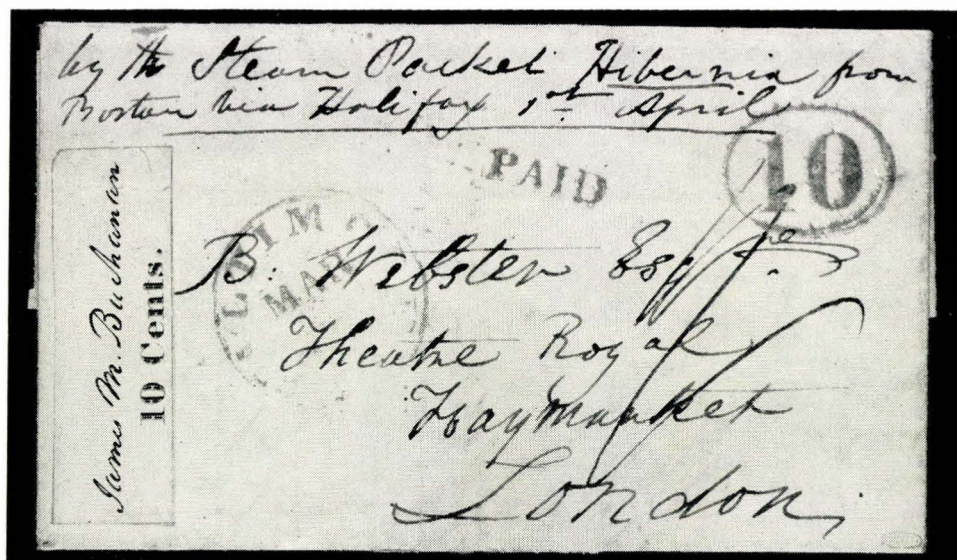 by the Steam Packet Hibernia from
Boston via Halifax 1st April
PAID
10
James M. Buchanan
10 Cents.
MAR
B. Webster Esqre.
Theatre Royal
Haymarket
London.